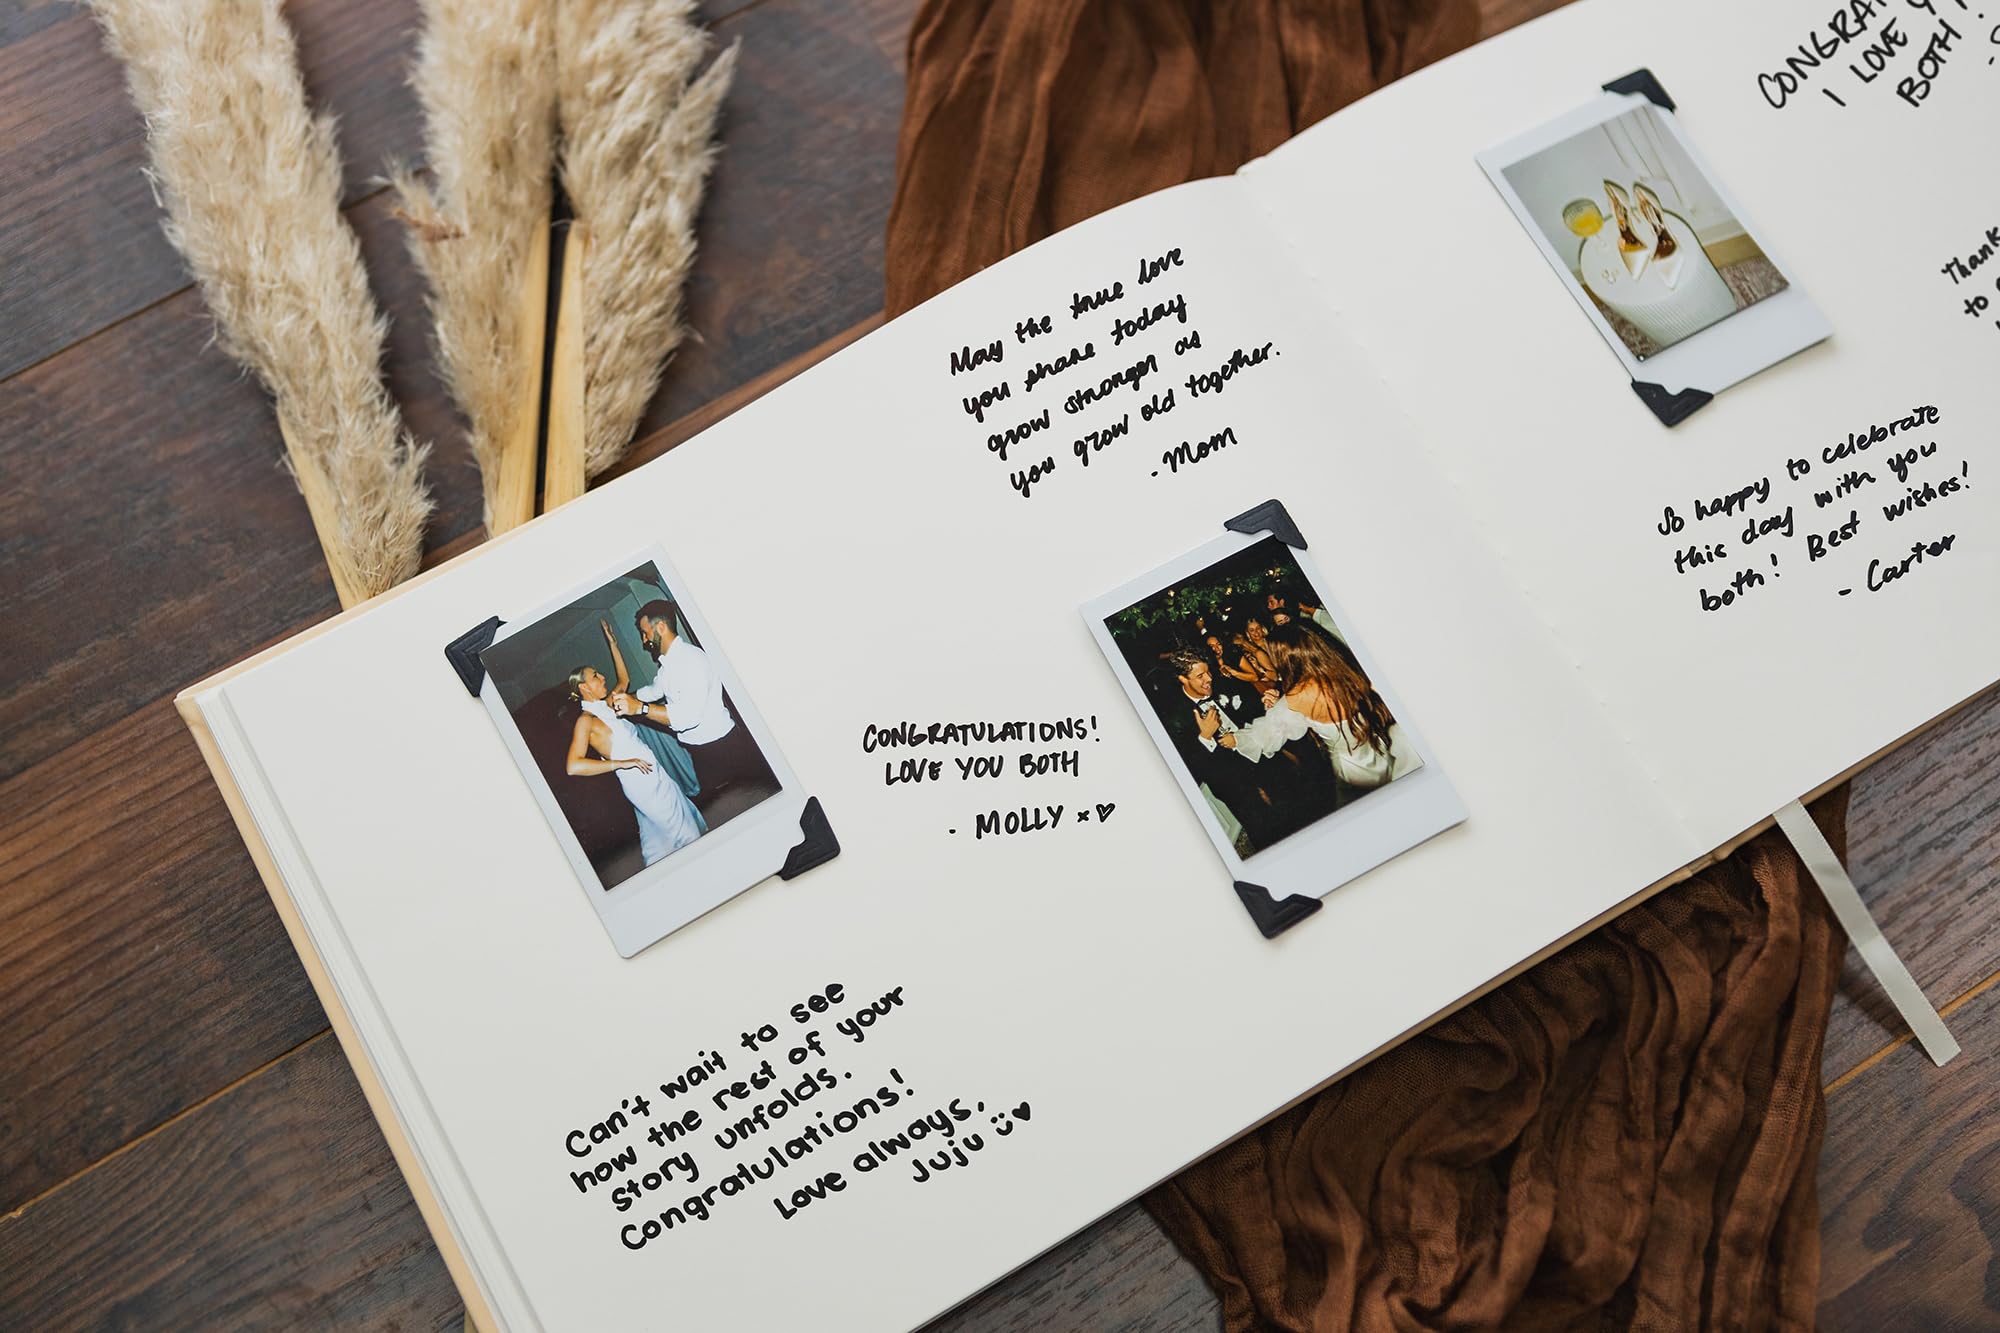 May the true love
you share today
grow stronger as
you grow old together.
- Mom
CONGRATULATIONS!
LOVE YOU BOTH
- MOLLY x♡
Can't wait to see
how the rest of your
story unfolds.
Congratulations!
Love always,
Juju ♥
I LOVE
BOTH
Thank
to
So happy to celebrate
this day with you
both! Best wishes!
- Carter